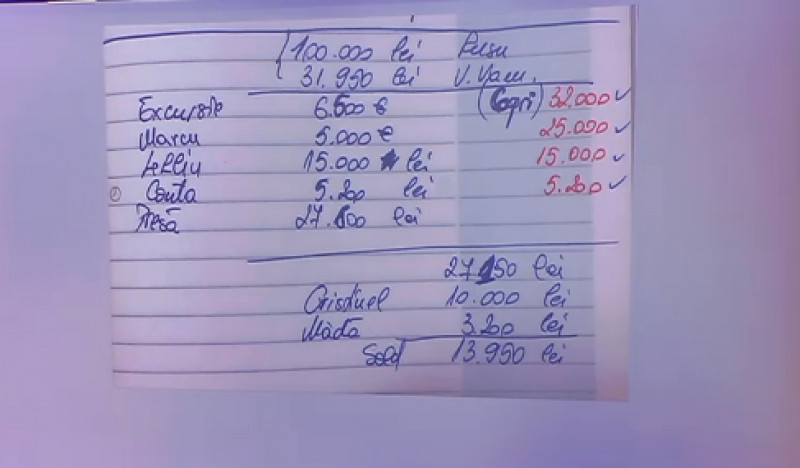 100.000 lei Rusu
31.950 lei V. Vam.
Excursie 6.500 € (Copri) 32.000 ✓
Marcu 5.000 € 25.000 ✓
15.000 lei 15.000 ✓
Conta 5.200 lei 5.200 ✓
Presă 27.600 lei
27.150 lei
10.000 lei
Măda 3.200 lei
Sold 13.950 lei